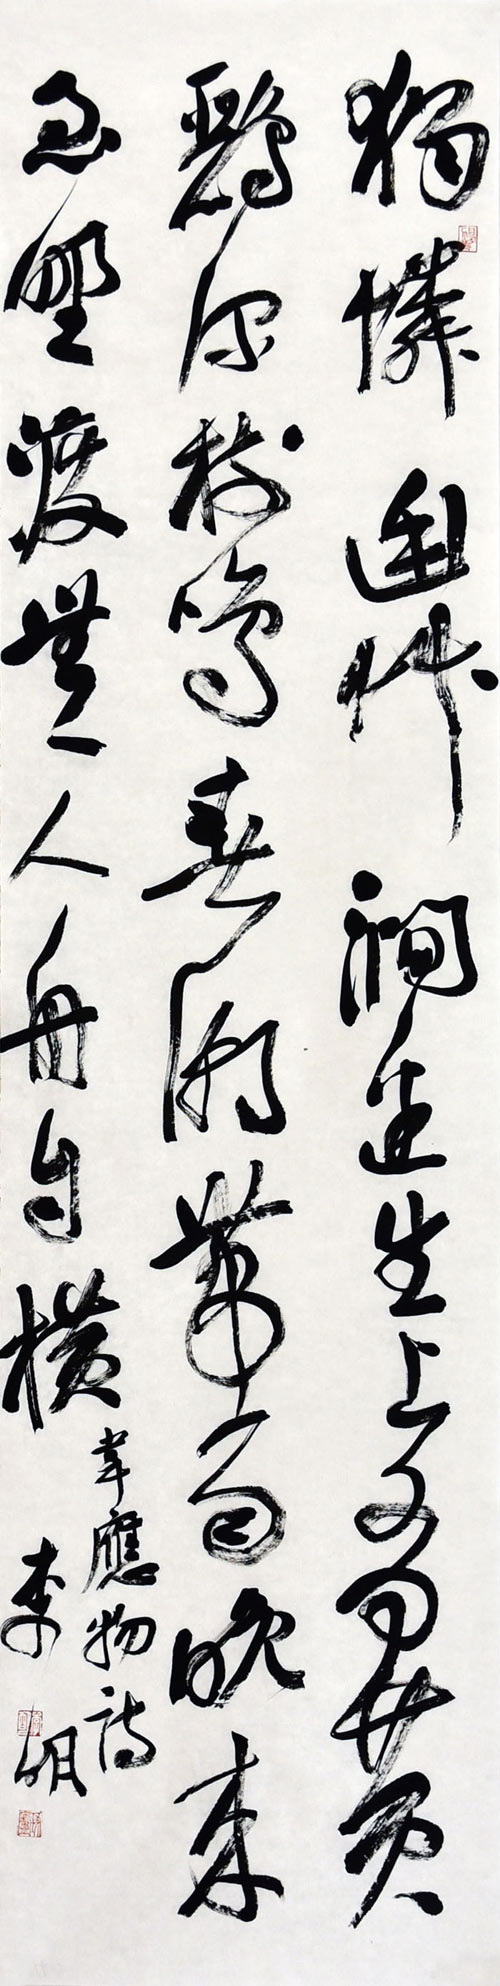 獨憐幽草澗邊生上有黃
鸝深樹鳴春潮帶雨晚來
急野渡無人舟自橫
韋應物詩
李明